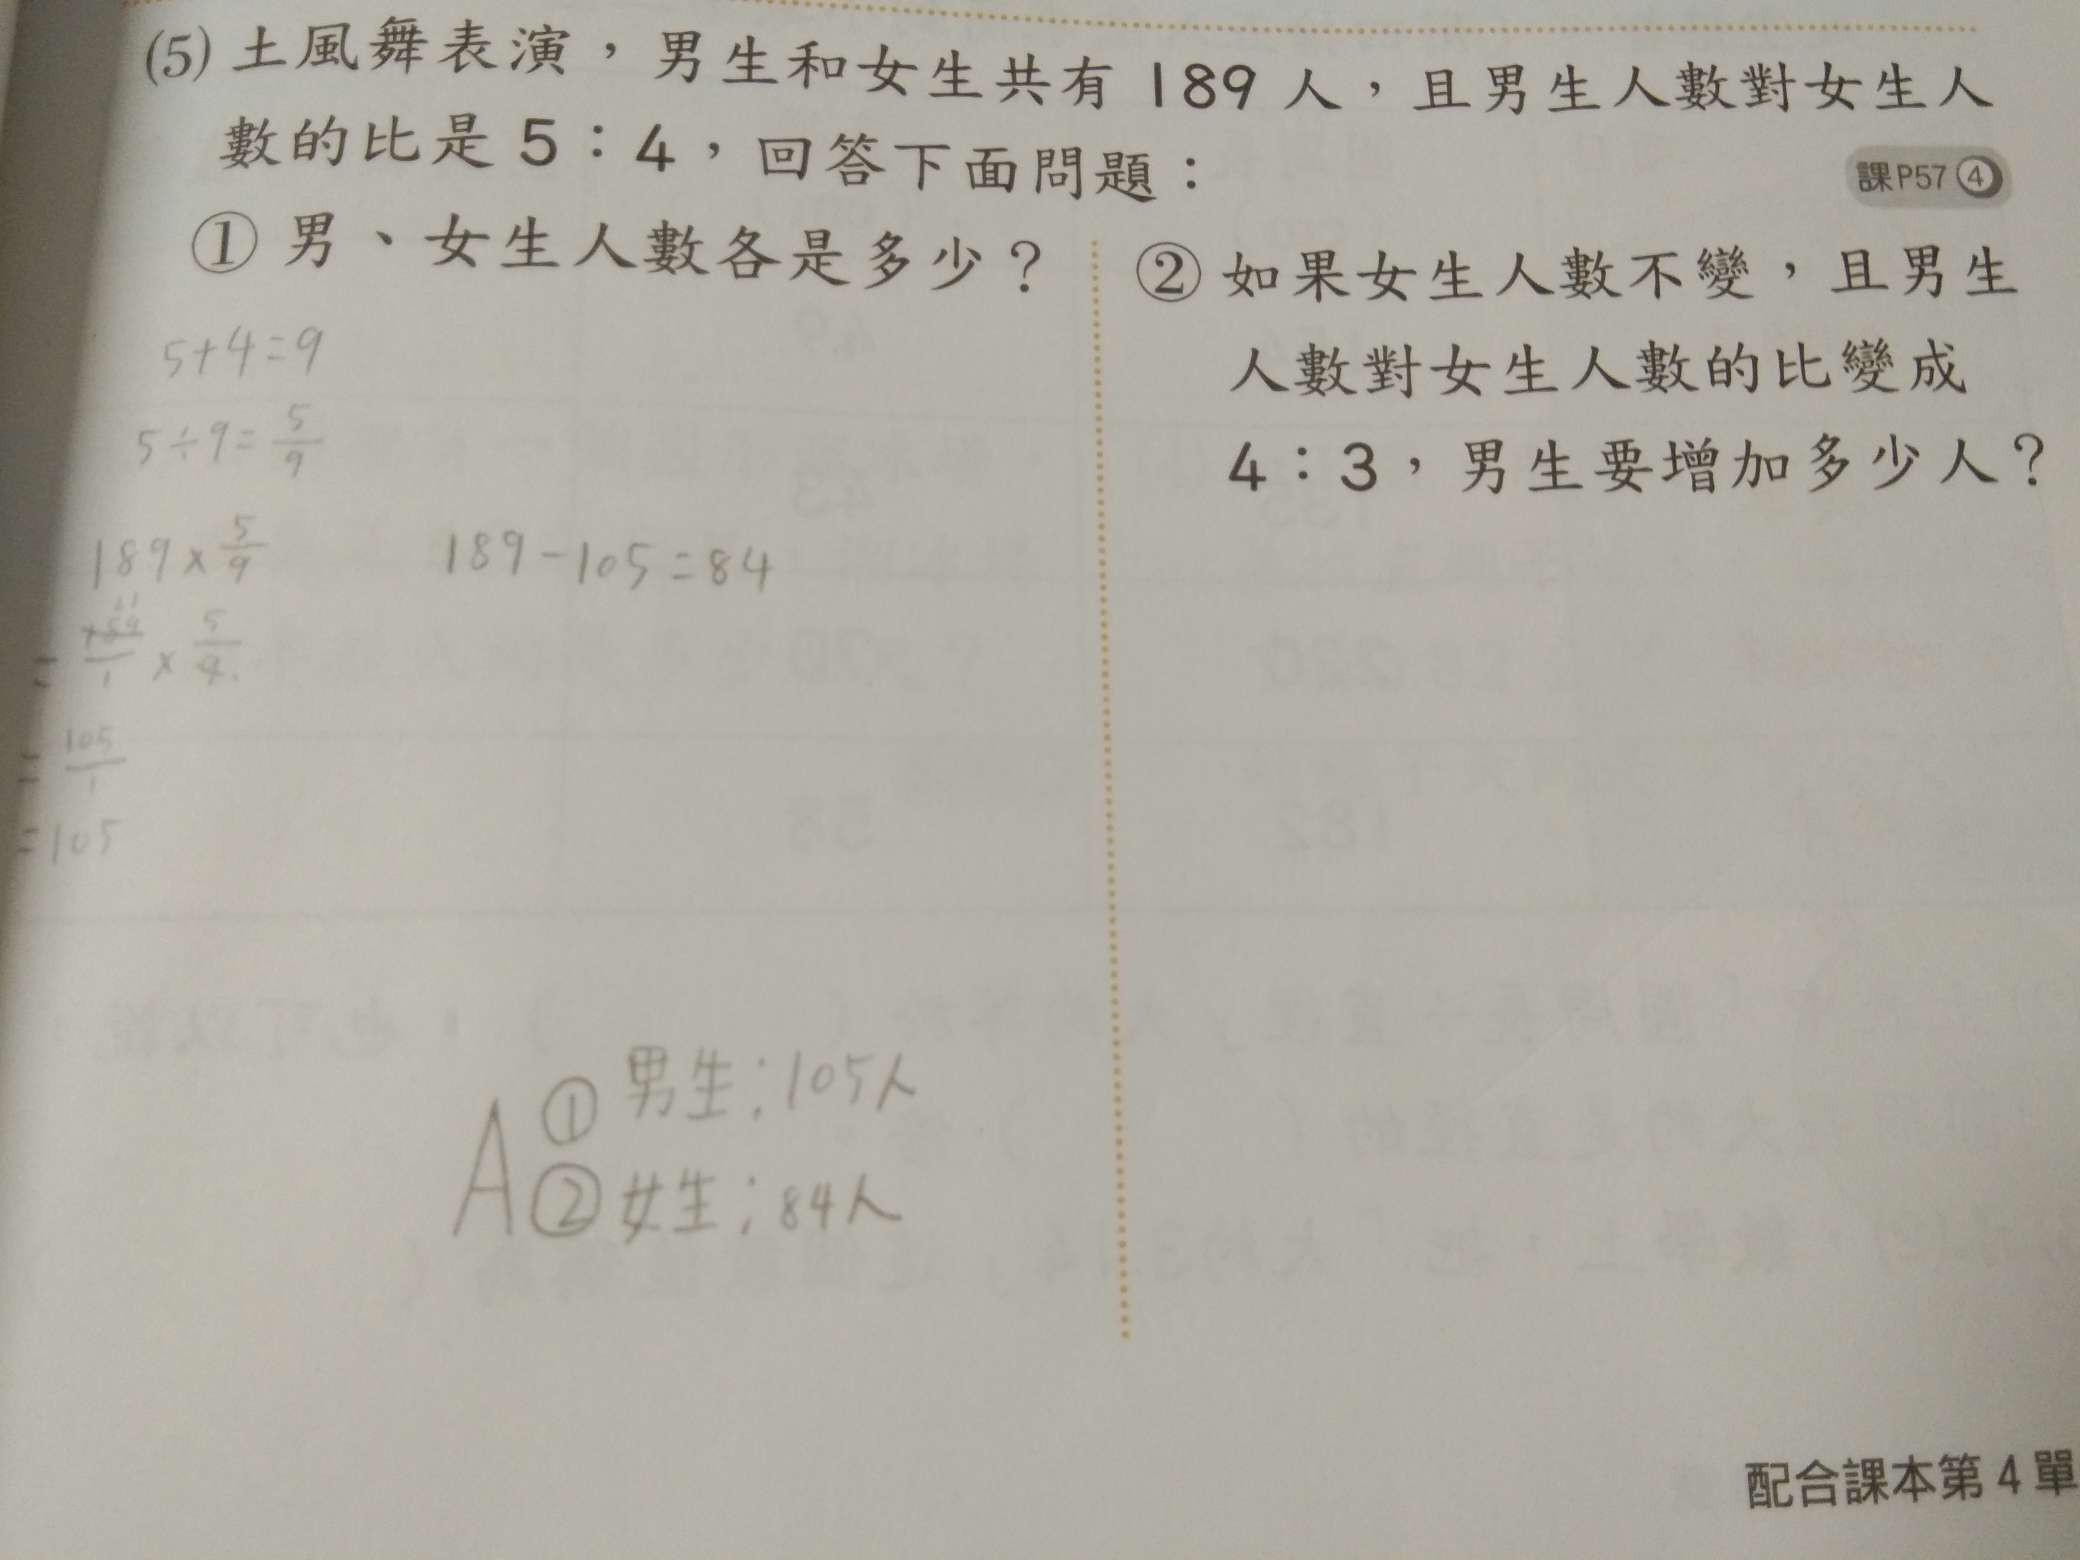 (5) 土風舞表演，男生和女生共有 189 人，且男生人數對女生人
數的比是 5：4，回答下面問題：
課P57 ④
① 男、女生人數各是多少？
5+4=9
5÷9=5/9
189×5/9
=189/1×5/9
=105/1
=105
189-105=84
A ① 男生：105人
② 女生：84人
② 如果女生人數不變，且男生
人數對女生人數的比變成
4：3，男生要增加多少人？
配合課本第 4 單